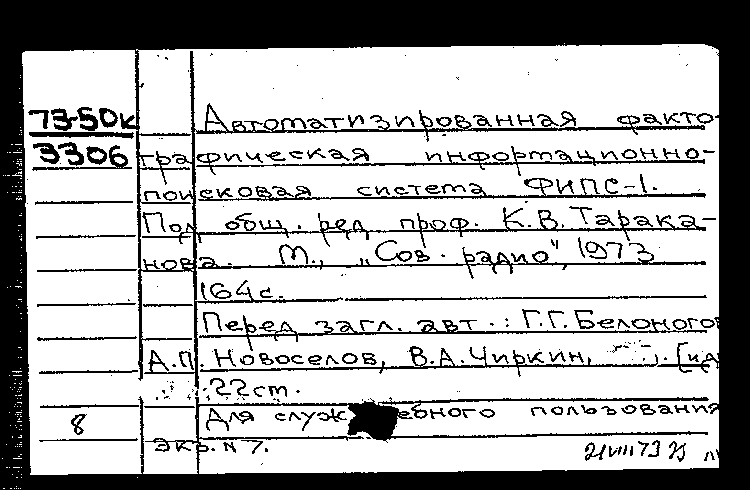 73-50к Автоматизированная факто-
3306 графическая информационно-
поисковая система ФИПС-1.
Под общ. ред. проф. К.В. Тарака-
нова. М., „Сов. радио", 1973
164 с.
Перед загл. авт.: Г.Г. Белоногов
А.П. Новоселов, В.А. Чиркин,
22 cm.
8 Для служебного пользования
экз. N 7.
21 VIII 73